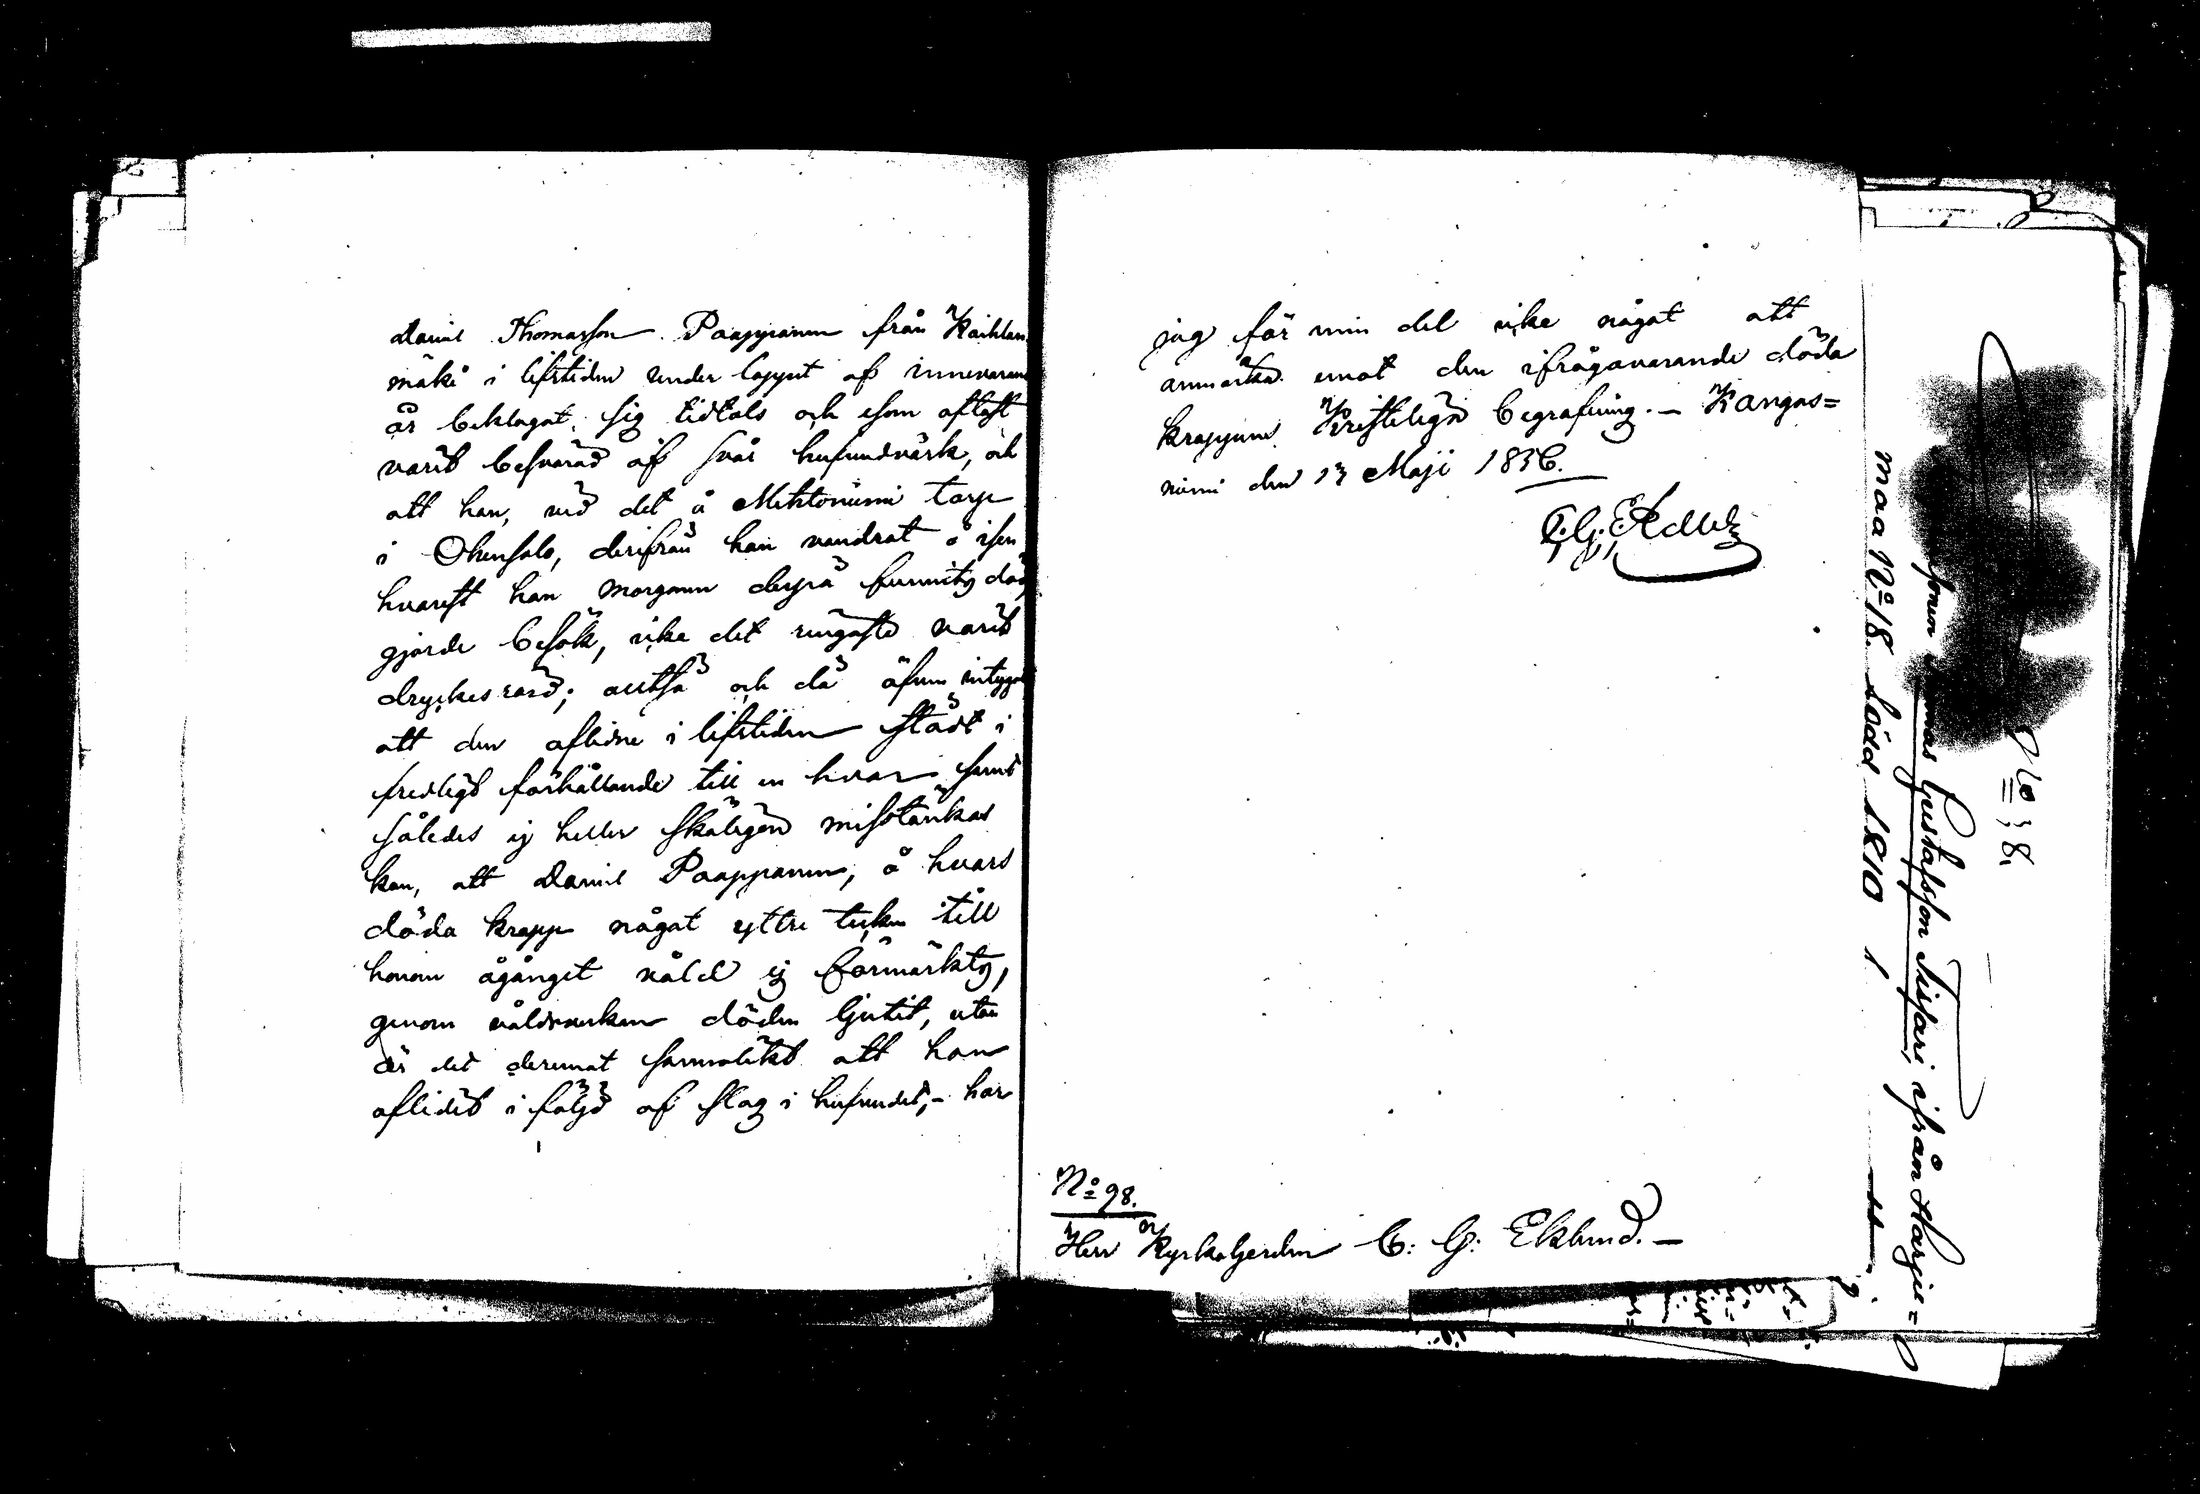 Daniel Thomasson Paappanen från Kaihlan
mäki i lifstiden under loppet af innevaran
år beklagat sig tidtals och som oftast
varit besvärad af svår hufvudvärk, och
att han, vid det å Mehtoniemi torp
i Ohensalo, derifrån han vandrat å isen
hvarest han morgonen derpå funnits död,
gjorde besök, icke det ringaste varit
dryckesrard; alltså och då äfven intygat
att den aflidne i lifstiden städt i
fredligt förhållande till en hvar samt
således ej heller skäligen misstänkas
kan, att Daniel Paappanen, å hvars
döda kropp något yttre tecken till
honom ågånget våld ej förmärkts,
genom våldsverkan döden ljutit, utan
är det deremot sannolikt att han
aflidit i följd af slag i hufvudet, - har
jag för min del icke något att
anmärka emot den ifrågavarande döda
kroppens Kristeliga begrafning. - Kangas=
niemi den 13 Maji 1836.
No 98.
Herr Kyrkoherden C: G: Eklund. -
No 38.
Gustafsson Tissari ifrån Harju=
maa No 18. född 1810 1